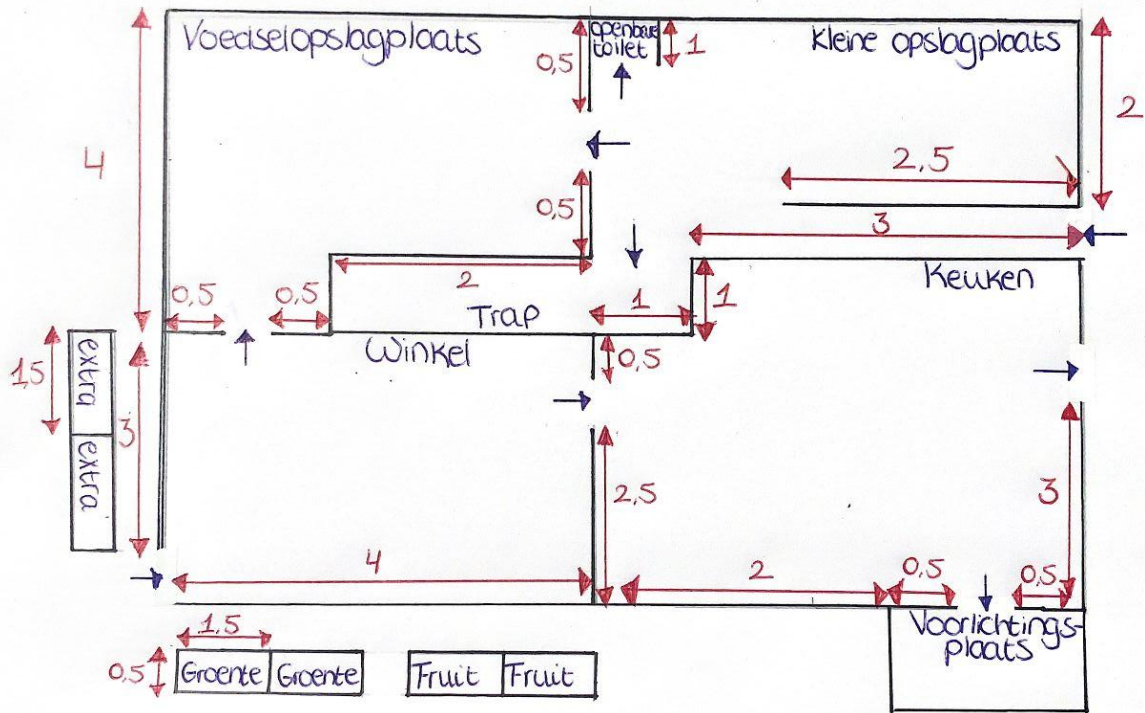 Voedselopslagplaats
0,5
openbare
toilet
1
Kleine opslagplaats
2
4
2,5
0,5
3
2
Keuken
0,5
0,5
Trap
1
1
Winkel
0,5
1,5
extra
extra
3
2,5
3
4
2
0,5
0,5
Voorlichtings-
plaats
1,5
0,5
Groente
Groente
Fruit
Fruit